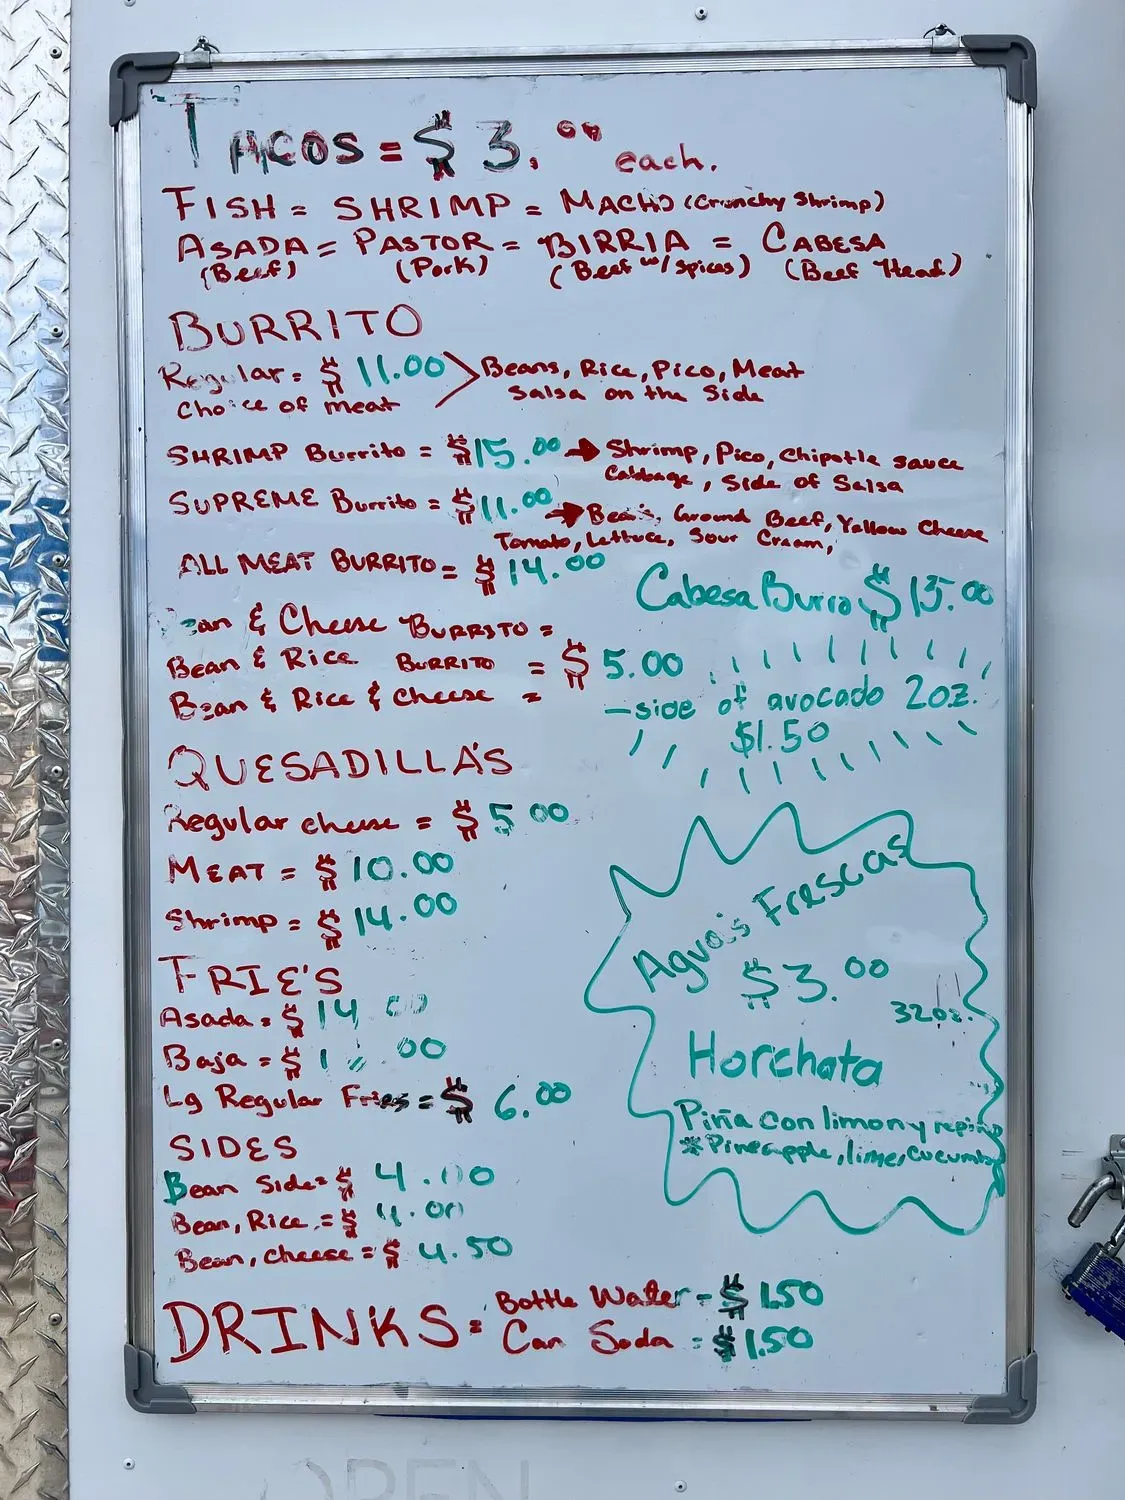 TACOS = $3.00 each.
FISH = SHRIMP = MACHO (Crunchy Shrimp)
ASADA = PASTOR = BIRRIA = CABESA
(Beef) (Pork) (Beef w/ spices) (Beef Head)
BURRITO
Regular = $11.00 > Beans, Rice, Pico, Meat
choice of meat Salsa on the Side
SHRIMP Burrito = $15.00 → Shrimp, Pico, Chipotle sauce
Cabbage, Side of Salsa
SUPREME Burrito = $11.00 → Beans, Ground Beef, Yellow Cheese
Tomato, Lettuce, Sour Cream,
ALL MEAT BURRITO = $14.00
Cabesa Burro $15.00
Bean & Cheese BURRITO =
Bean & Rice BURRITO = $5.00
Bean & Rice & Cheese =
-side of avocado 2oz.
$1.50
QUESADILLA'S
Regular cheese = $5.00
MEAT = $10.00
Shrimp = $14.00
FRIE'S
Asada = $14.00
Baja = $
Lg Regular Fries = $6.00
SIDES
Bean Side = $4.00
Bean, Rice = $4.00
Bean, cheese = $4.50
Agua's Frescas
$3.00
32oz.
Horchata
Piña con limon y
*Pineapple, lime,
DRINKS = Bottle Water - $1.50
Can Soda = $1.50
OPEN